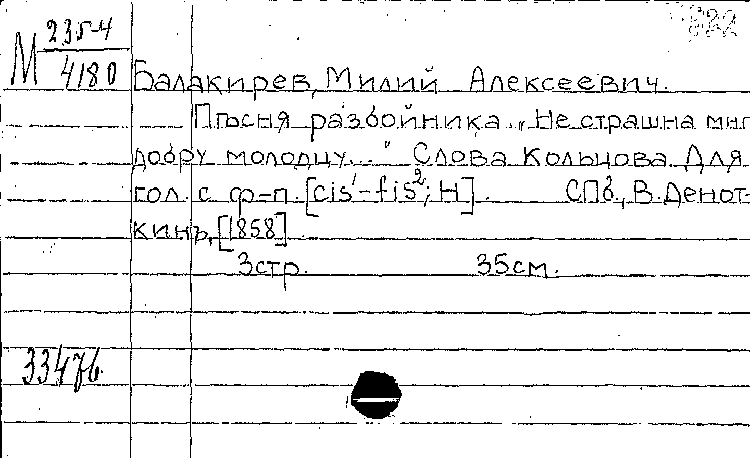 М 235-4
4180
Балакирев, Милий Алексеевич.
Пѣсня разбойника „Не страшна мнѣ
добру молодцу..." Слова Кольцова. Для
гол. с ф-п. [cis¹-fis²; H]. СПб., В. Денот-
кинъ, [1858].
3 стр. 35 см.
33476